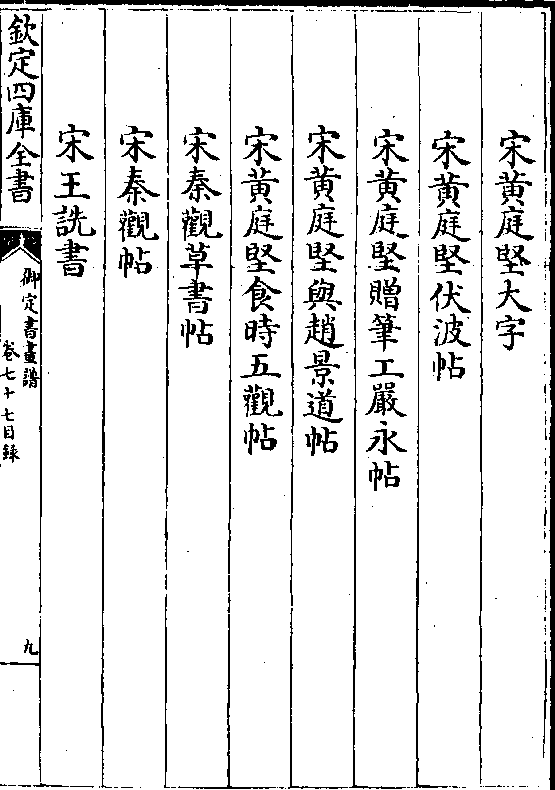 宋黄庭堅大字
宋黄庭堅伏波帖
宋黄庭堅贈筆工嚴永帖
宋黄庭堅與趙景道帖
宋黄庭堅食時五觀帖
宋秦觀草書帖
宋秦觀帖
宋王詵書
欽定四庫全書
御定書畫譜
卷七十七目録
九